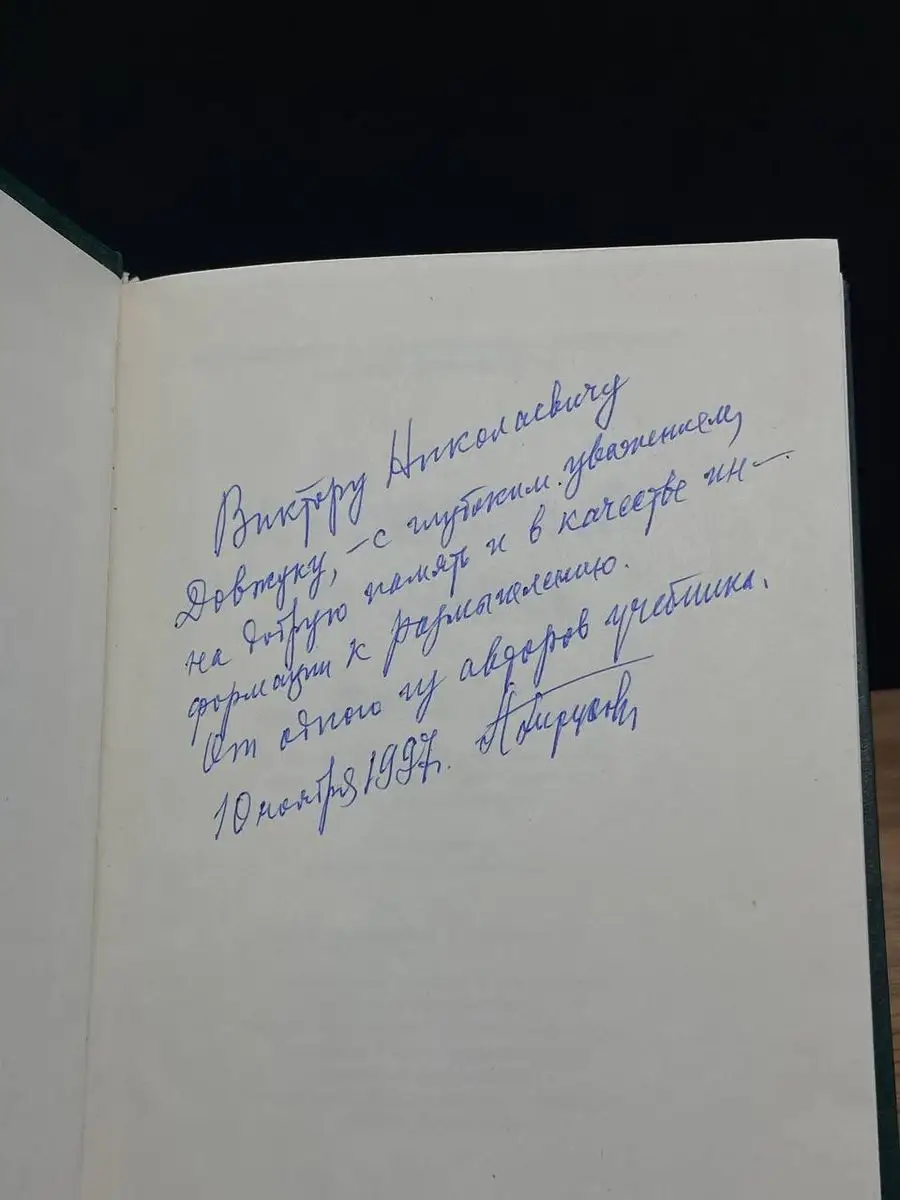 Виктору Николаевичу
Довжуку, – с глубоким уважением,
на добрую память и в качестве ин-
формации к размышлению.
От одного из авторов учебника.
10 ноября 1997г.